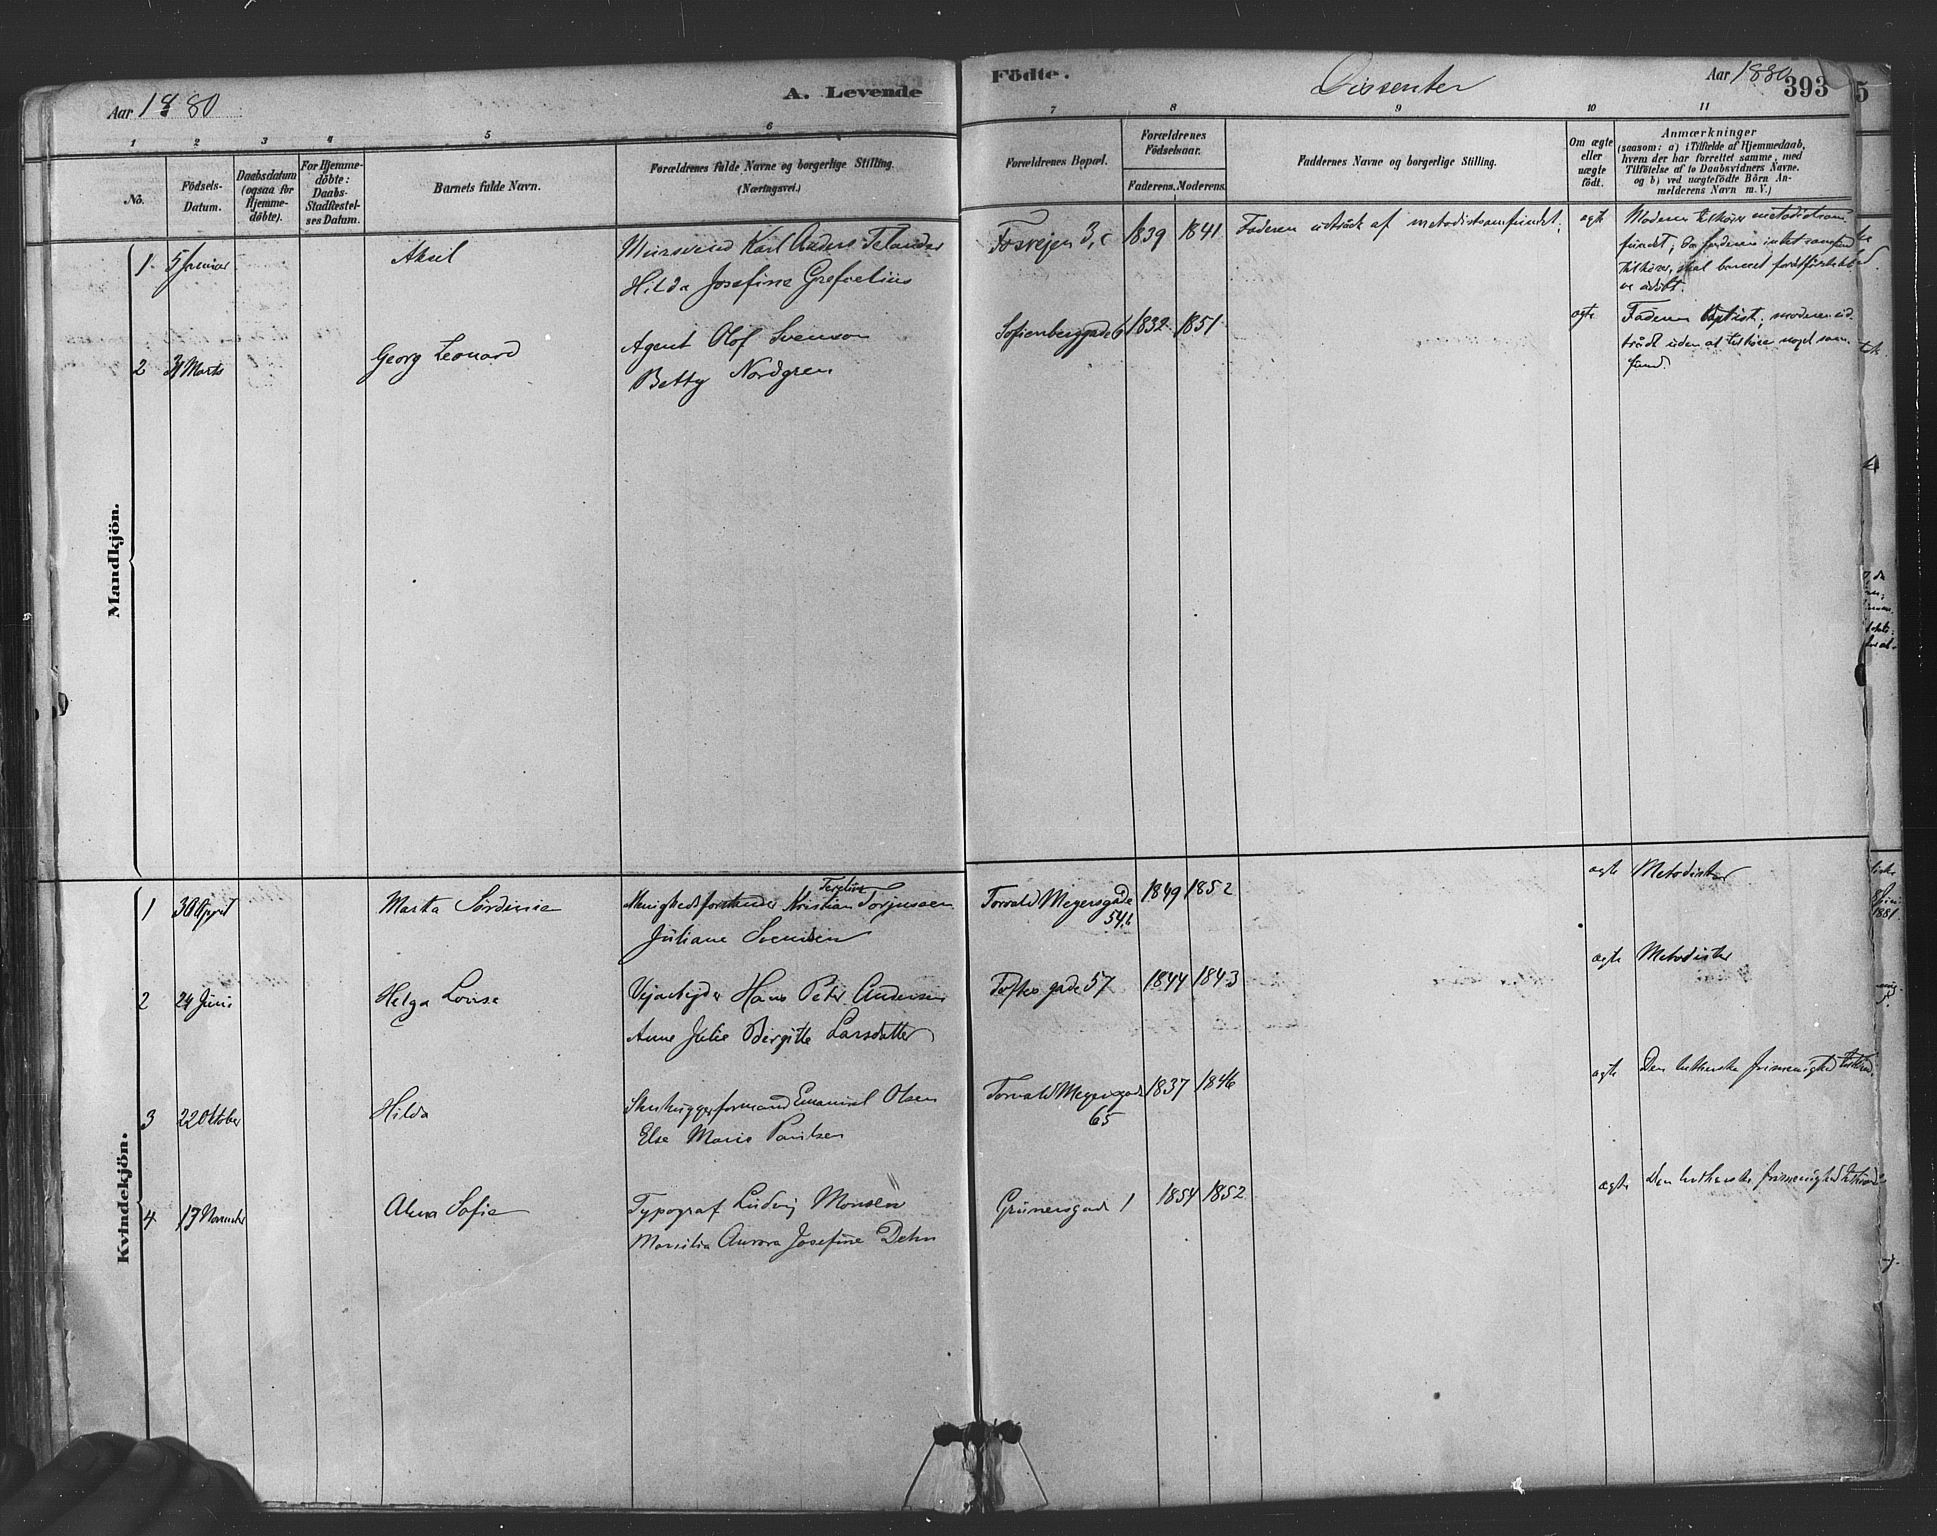 Aar 1880
A. Levende
Födte.
Dissenter
Aar 1880
393
1 2 3 4 5 6 7 8 9 10 11
No.
Födsels-
Datum.
Daabsdatum
(ogsaa för
Hjemme-
döbte).
For Hjemme-
döbte:
Daabs-
Stadfæstel-
ses Datum.
Barnets fulde Navn.
Forældrenes fulde Navne og borgerlige Stilling.
(Næringsvei.)
Forældrenes Bopæl.
Forældrenes
Födselsaar.
Faderens. Moderens.
Faddernes Navne og borgerlige Stilling.
Om ægte
eller
uægte
födt.
Anmærkninger
(saasom: a) i Tilfælde af Hjemmedaab,
hvem der har forrettet samme, med
Tilföielse af to Daabsvidners Navne.
og b) ved uægtefödte Börn An-
melderens Navn m. V.)
Mandkjön.
1 5 Januar Aksel Murssvend Karl Anders Telander
Hilda Josefine Grefvelius
Fosvejen 3, c 1839 1841 Faderen udtrådt af metodistsamfundet; ægte
Moderen tilhører metodistsam-
fundet; da faderen intet samfund
tilhører, skal barnet
2 31 Marts Georg Leonard Agent Olof Svenson
Betty Nordgren
Sofienberggade 6 1832 1851 ægte
Faderen baptist; moderen ud-
trådt uden at tilhøre noget sam-
fund.
Kvindekjön.
1 30 April Marta Sørdinie Menighedsforstander Kristian Torjussen
Juliane Svendsen
Torvald Meyersgade
54, b
1849 1852 ægte Metodister
2 24 Juni Helga Lovise Vejarbejder Hans Peter Andersen
Anne Julie Birgitte Larsdatter
Toftes gade 57 1844 1843 ægte Metodister
3 22 Oktober Hilda Stenhuggerformand Emanuel Olsen
Else Marie Paulsen
Torvald Meyersgade
65
1837 1846 ægte Den lutherske frimenighed
4 17 November Alma Sofie Typograf Ludvig Monsen
Aurora Josefine Dehn
Grünersgade 1 1854 1852 ægte Den lutherske frimenighed